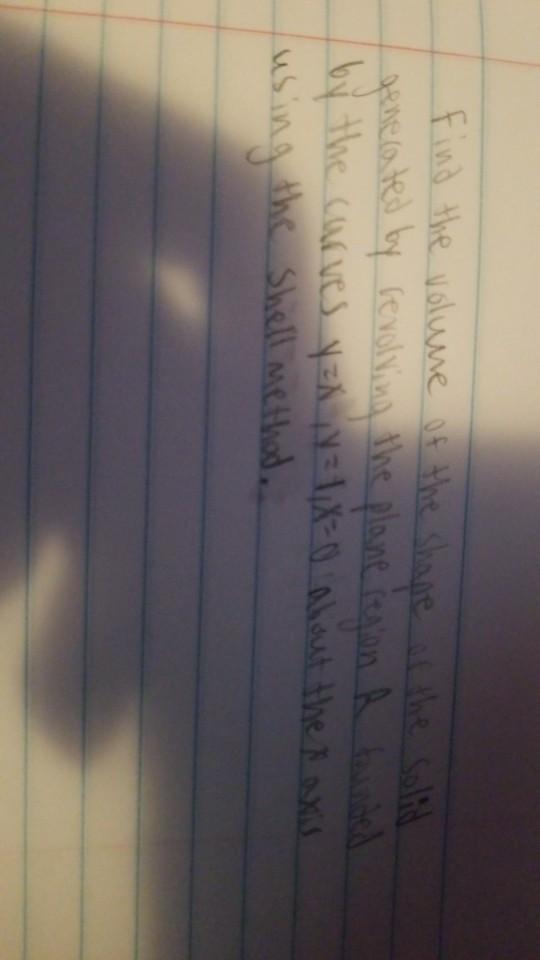 Find the volume of the shape of the solid
generated by revolving the plane region R bounded
by the curves y=x, y=1, x=0 about the x axis
using the shell method.